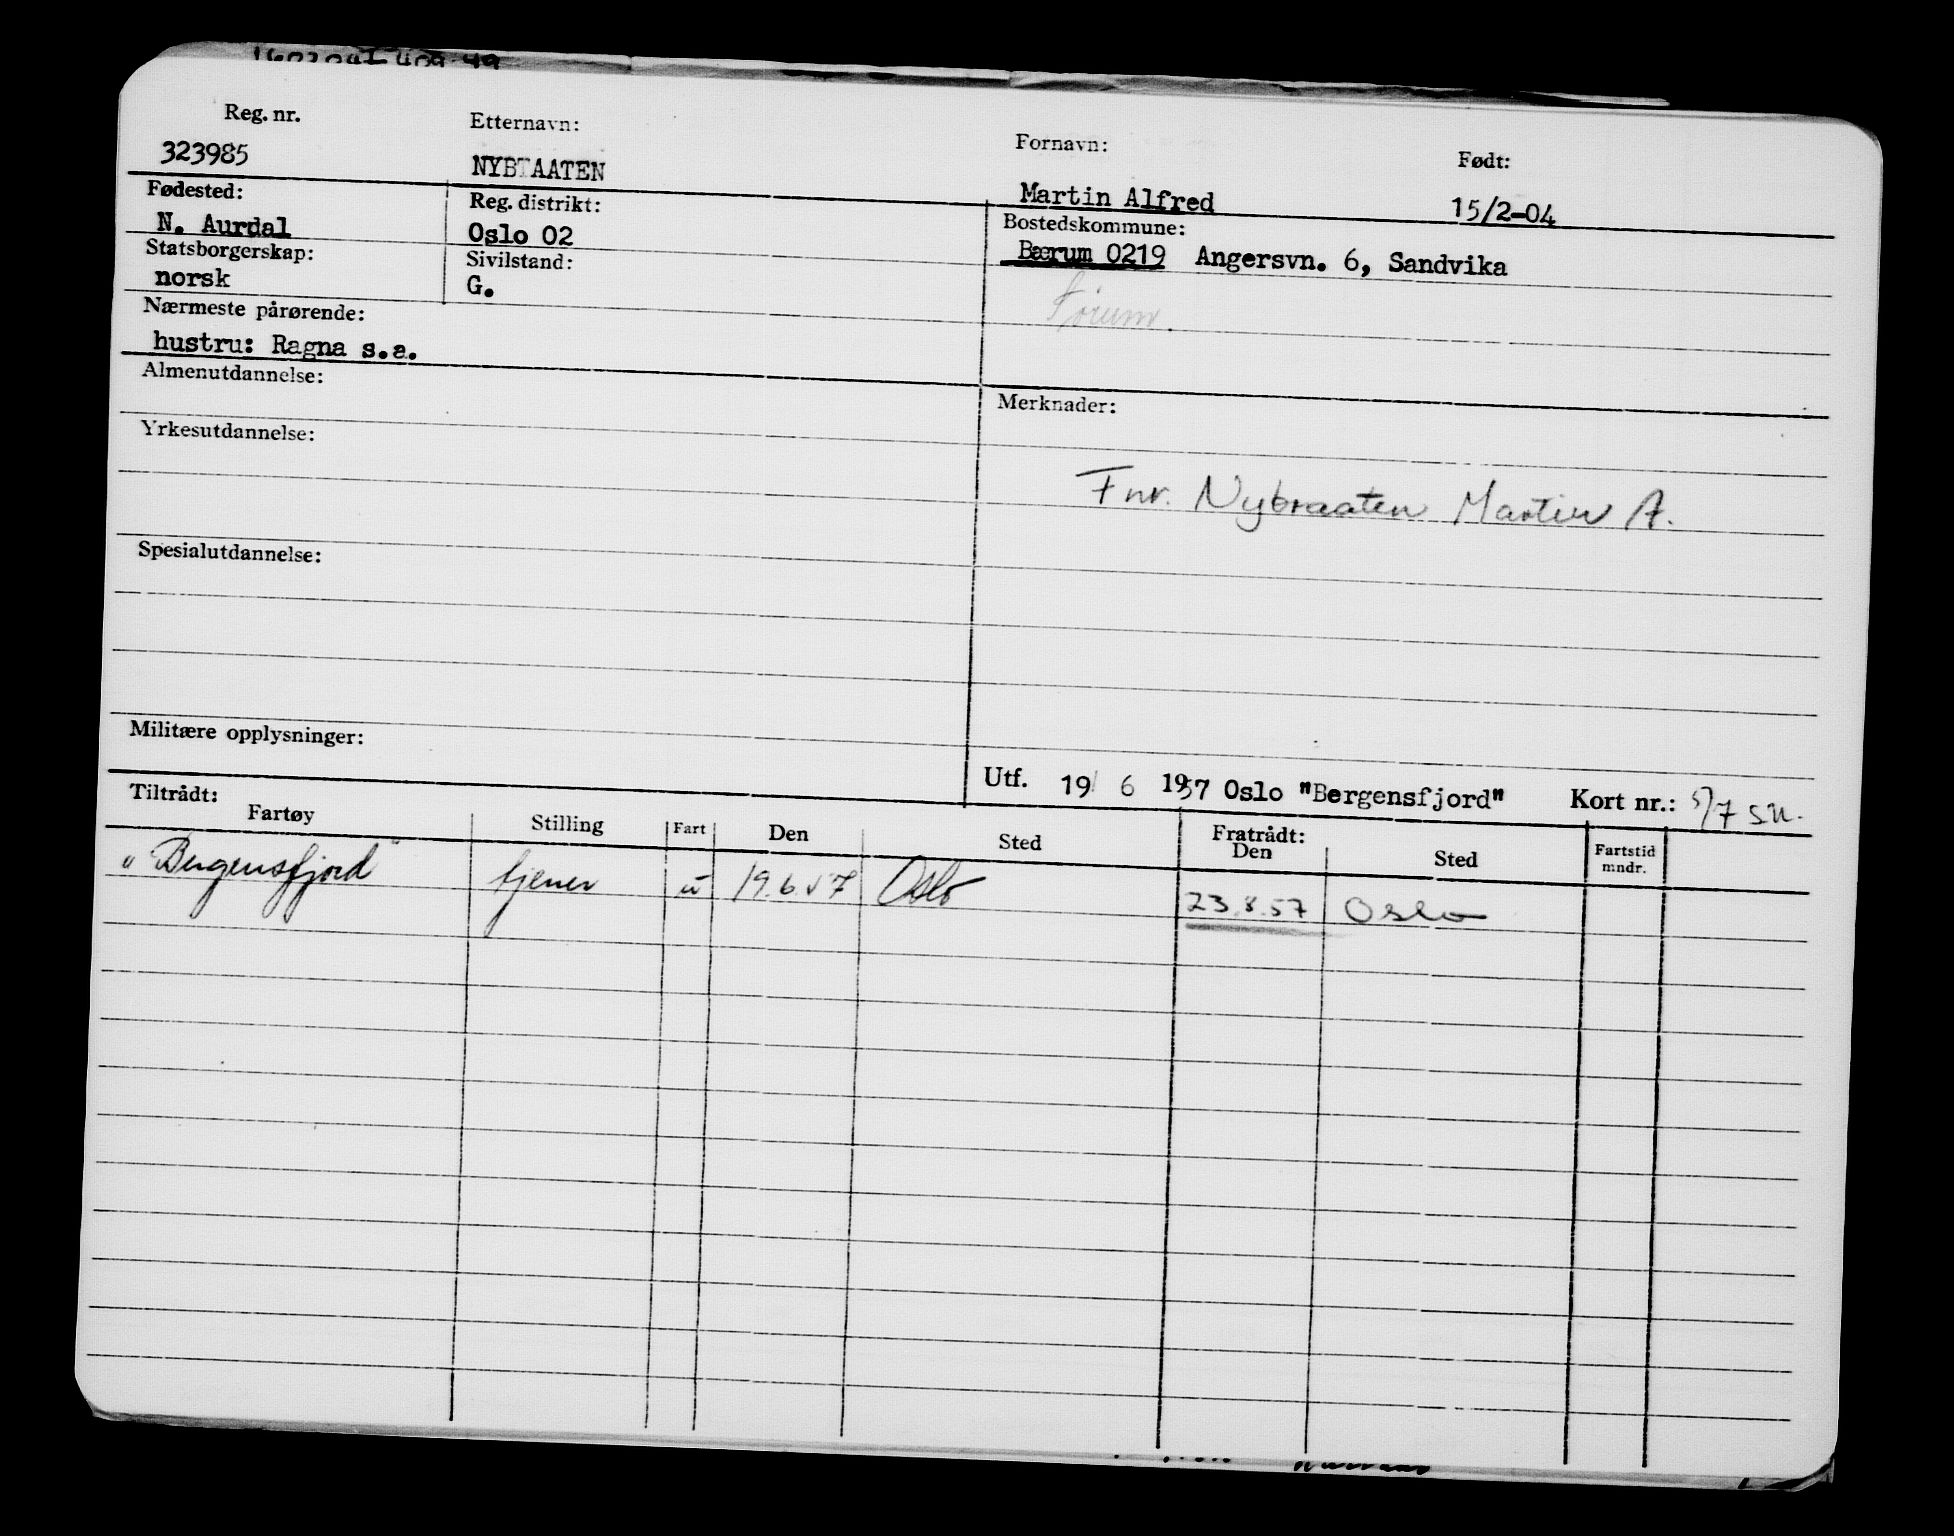 Reg. nr. Etternavn: Fornavn: Født:
323985 NYBTAATEN Martin Alfred 15/2-04
Fødested: Reg. distrikt: Bostedskommune:
N. Aurdal Oslo 02 Bærum 0219 Angersvn. 6, Sandvika
Statsborgerskap: Sivilstand:
norsk G.
Nærmeste pårørende:
hustru: Ragna s.a.
Almenutdannelse: Merknader:
Yrkesutdannelse:
Fnr. Nybraaten Martin A.
Spesialutdannelse:
Militære opplysninger:
Utf. 19 6 1957 Oslo "Bergensfjord" Kort nr.: 5/7 SN.
Tiltrådt: Fratrådt:
Fartøy Stilling Fart Den Sted Den Sted Fartstid mndr.
"Bergensfjord" tjener u 19.6.57 Oslo 23.8.57 Oslo